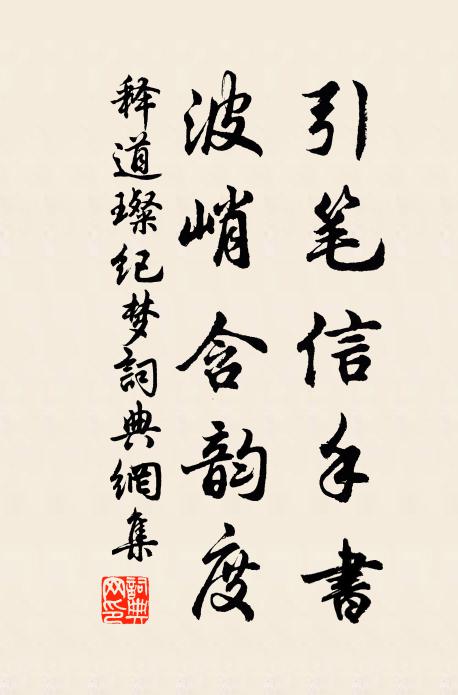 引笔信手書
波峭含韵度
释道璨纪梦詞典網集
詞典网印